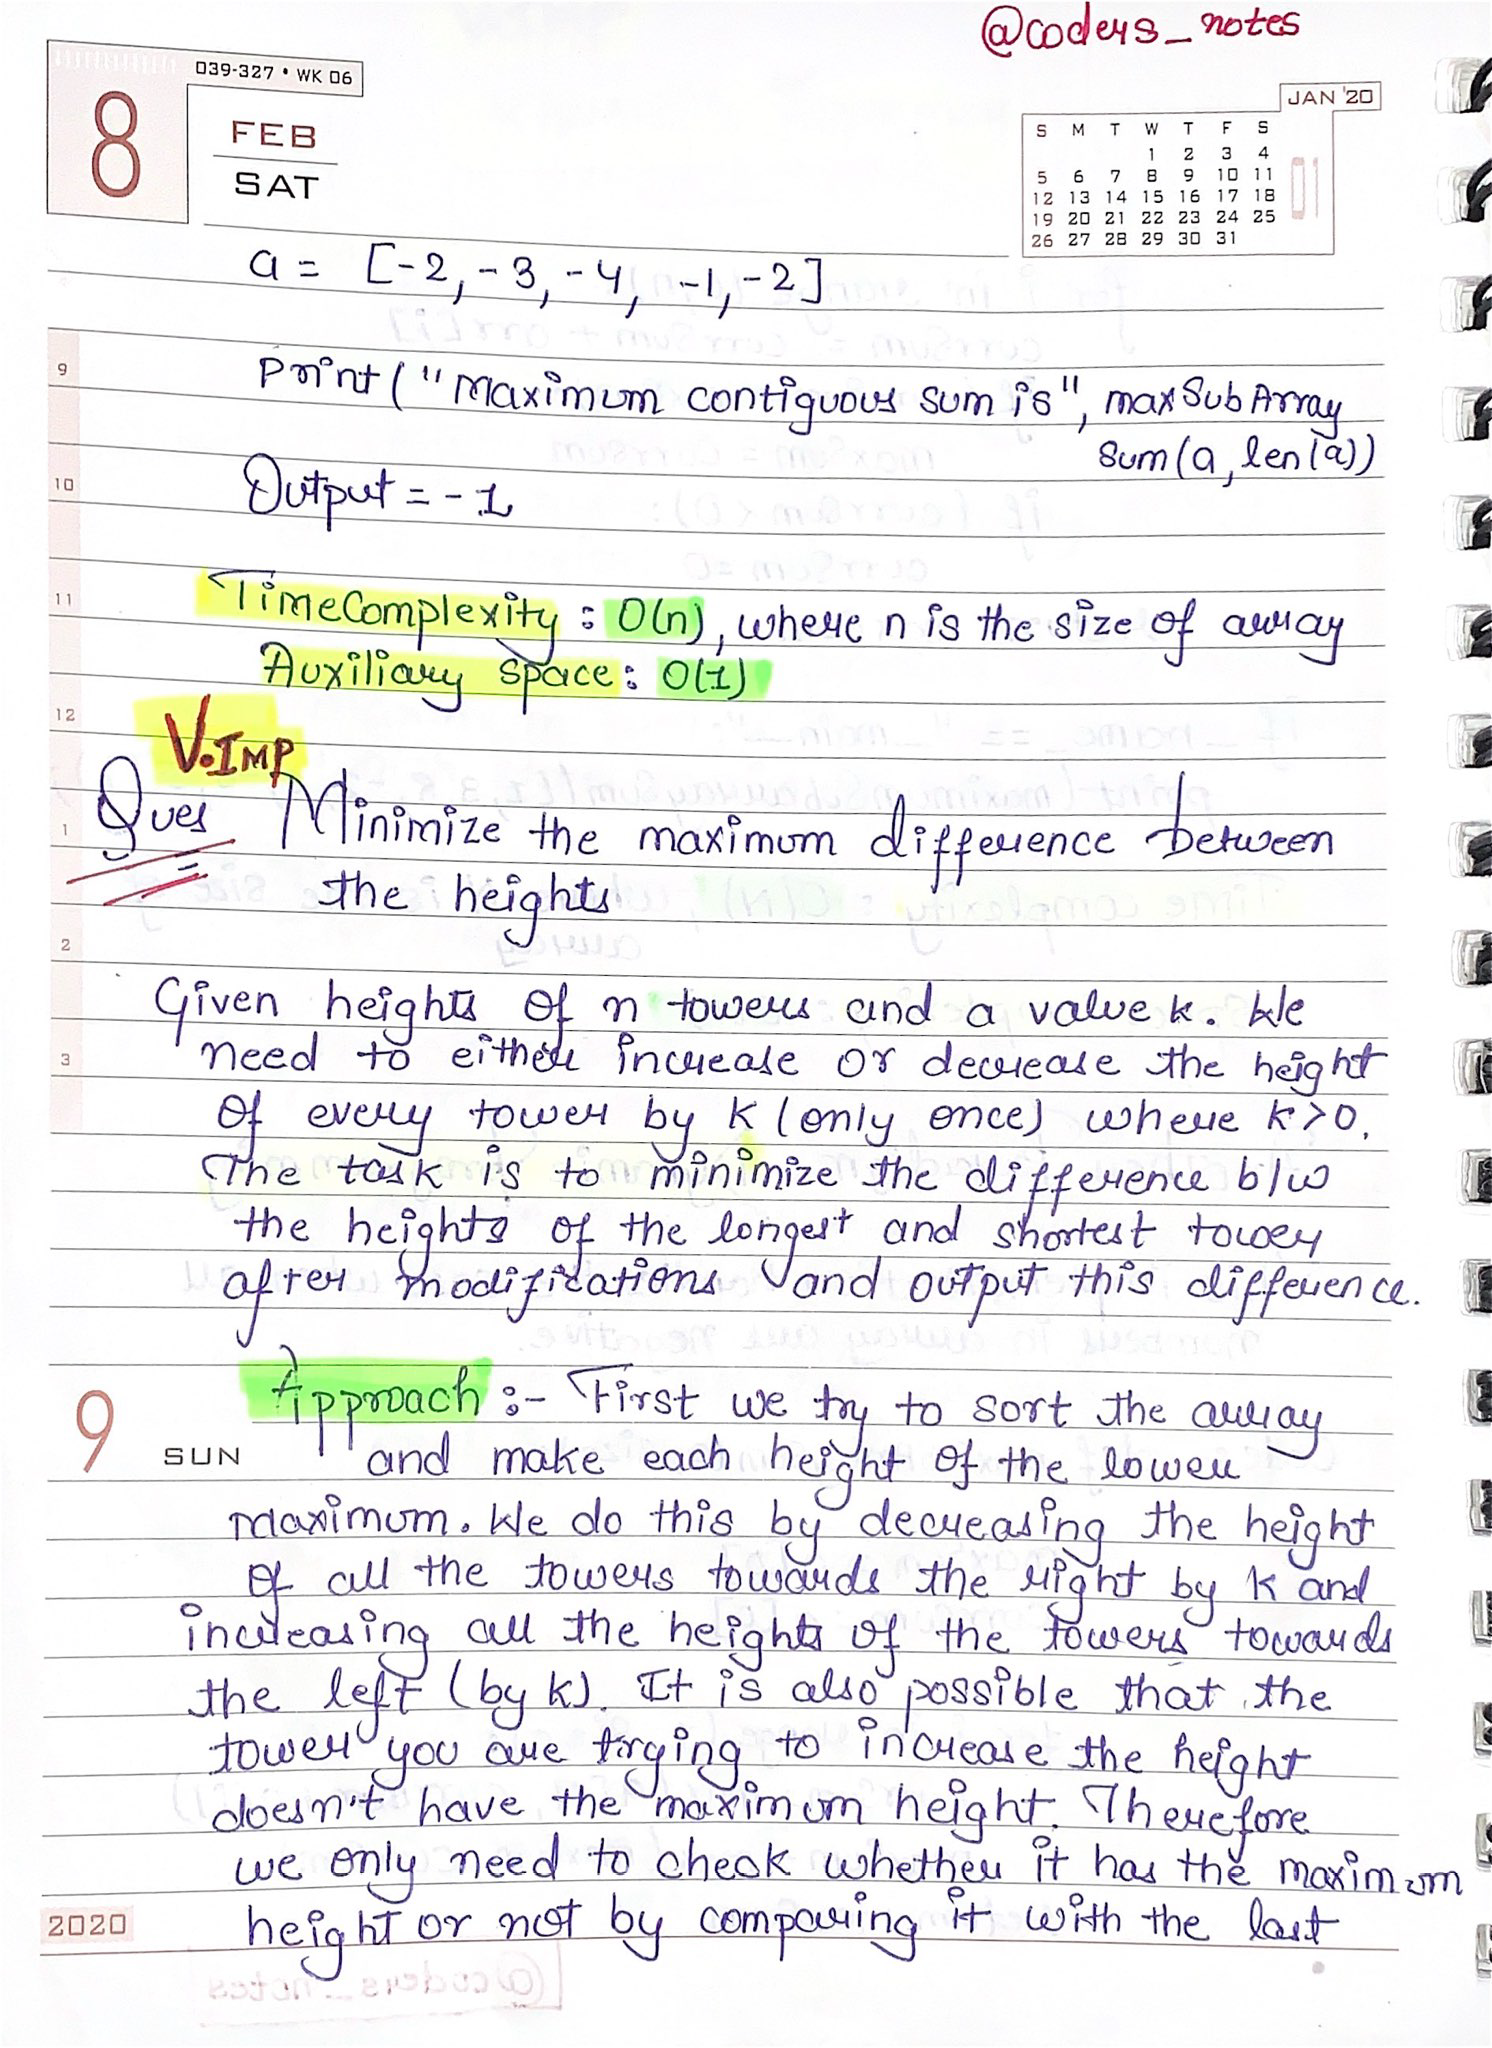 @coders_notes
039-327 • WK 06
8
FEB
SAT
JAN '20
S M T W T F S
1 2 3 4
5 6 7 8 9 10 11
12 13 14 15 16 17 18
19 20 21 22 23 24 25
26 27 28 29 30 31
01
a = [-2, -3, -4, -1, -2]
9
Print ("Maximum contiguous sum is", maxSubArray
Sum(a, len(a))
10
Output = -1
11
Time Complexity : O(n), where n is the size of array
Auxiliary space: O(1)
12
V.IMP
1
Ques Minimize the maximum difference between
the heights
2
Given heights of n towers and a value k. We
3
need to either increase or decrease the height
of every tower by k (only once) where k>0.
The task is to minimize the difference b/w
the heights of the longest and shortest tower
after modifications and output this difference.
9
SUN
Approach :- First we try to sort the array
and make each height of the lower
maximum. We do this by decreasing the height
of all the towers towards the right by k and
increasing all the heights of the towers towards
the left (by k). It is also possible that the
tower you are trying to increase the height
doesn't have the maximum height. Therefore
we only need to check whether it has the maximum
height or not by comparing it with the last
2020